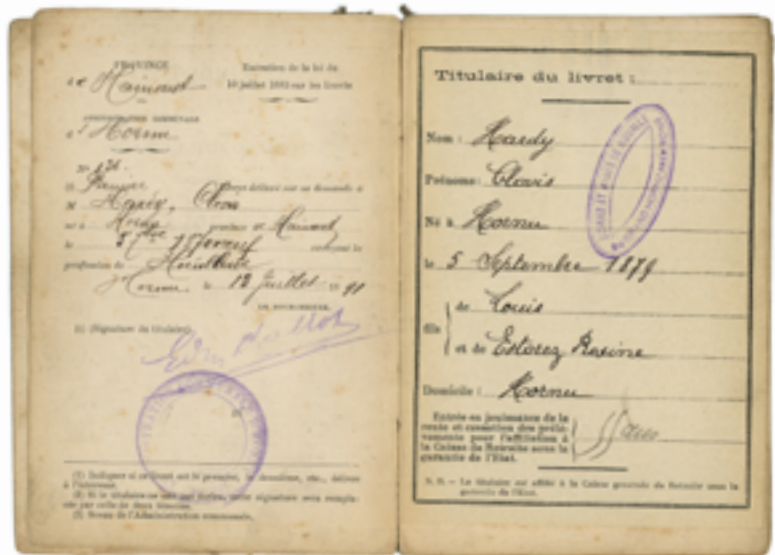 PROVINCE
de Hainaut
Exécution de la loi du
10 juillet 1883 sur les livrets
ADMINISTRATION COMMUNALE
d'Hornu
N°
Livret délivré sur sa demande à
M Hardy, Clovis
né à Hornu province de Hainaut
le 5
profession de Houilleur
Hornu, le 12 juillet 18 91
LE BOURGMESTRE,
(3) (Signature du titulaire).
(1) Indiquer si ce livret est le premier, le deuxième, etc., délivré
à l'intéressé.
(2) Si le titulaire ne sait pas écrire, cette signature sera rempla-
cée par celle de deux témoins.
(3) Sceau de l'Administration communale.
Titulaire du livret :
Nom : Hardy
Prénoms : Clovis
Né à Hornu
le 5 Septembre 1879
fils
de Louis
et de Estorez Rosine
Domicile : Hornu
Entrée en jouissance de la
rente et cessation des prélè-
vements pour l'affiliation à
la Caisse de Retraite sous la
garantie de l'État.
N. B. — Le titulaire est affilié à la Caisse générale de Retraite sous la
garantie de l'État.